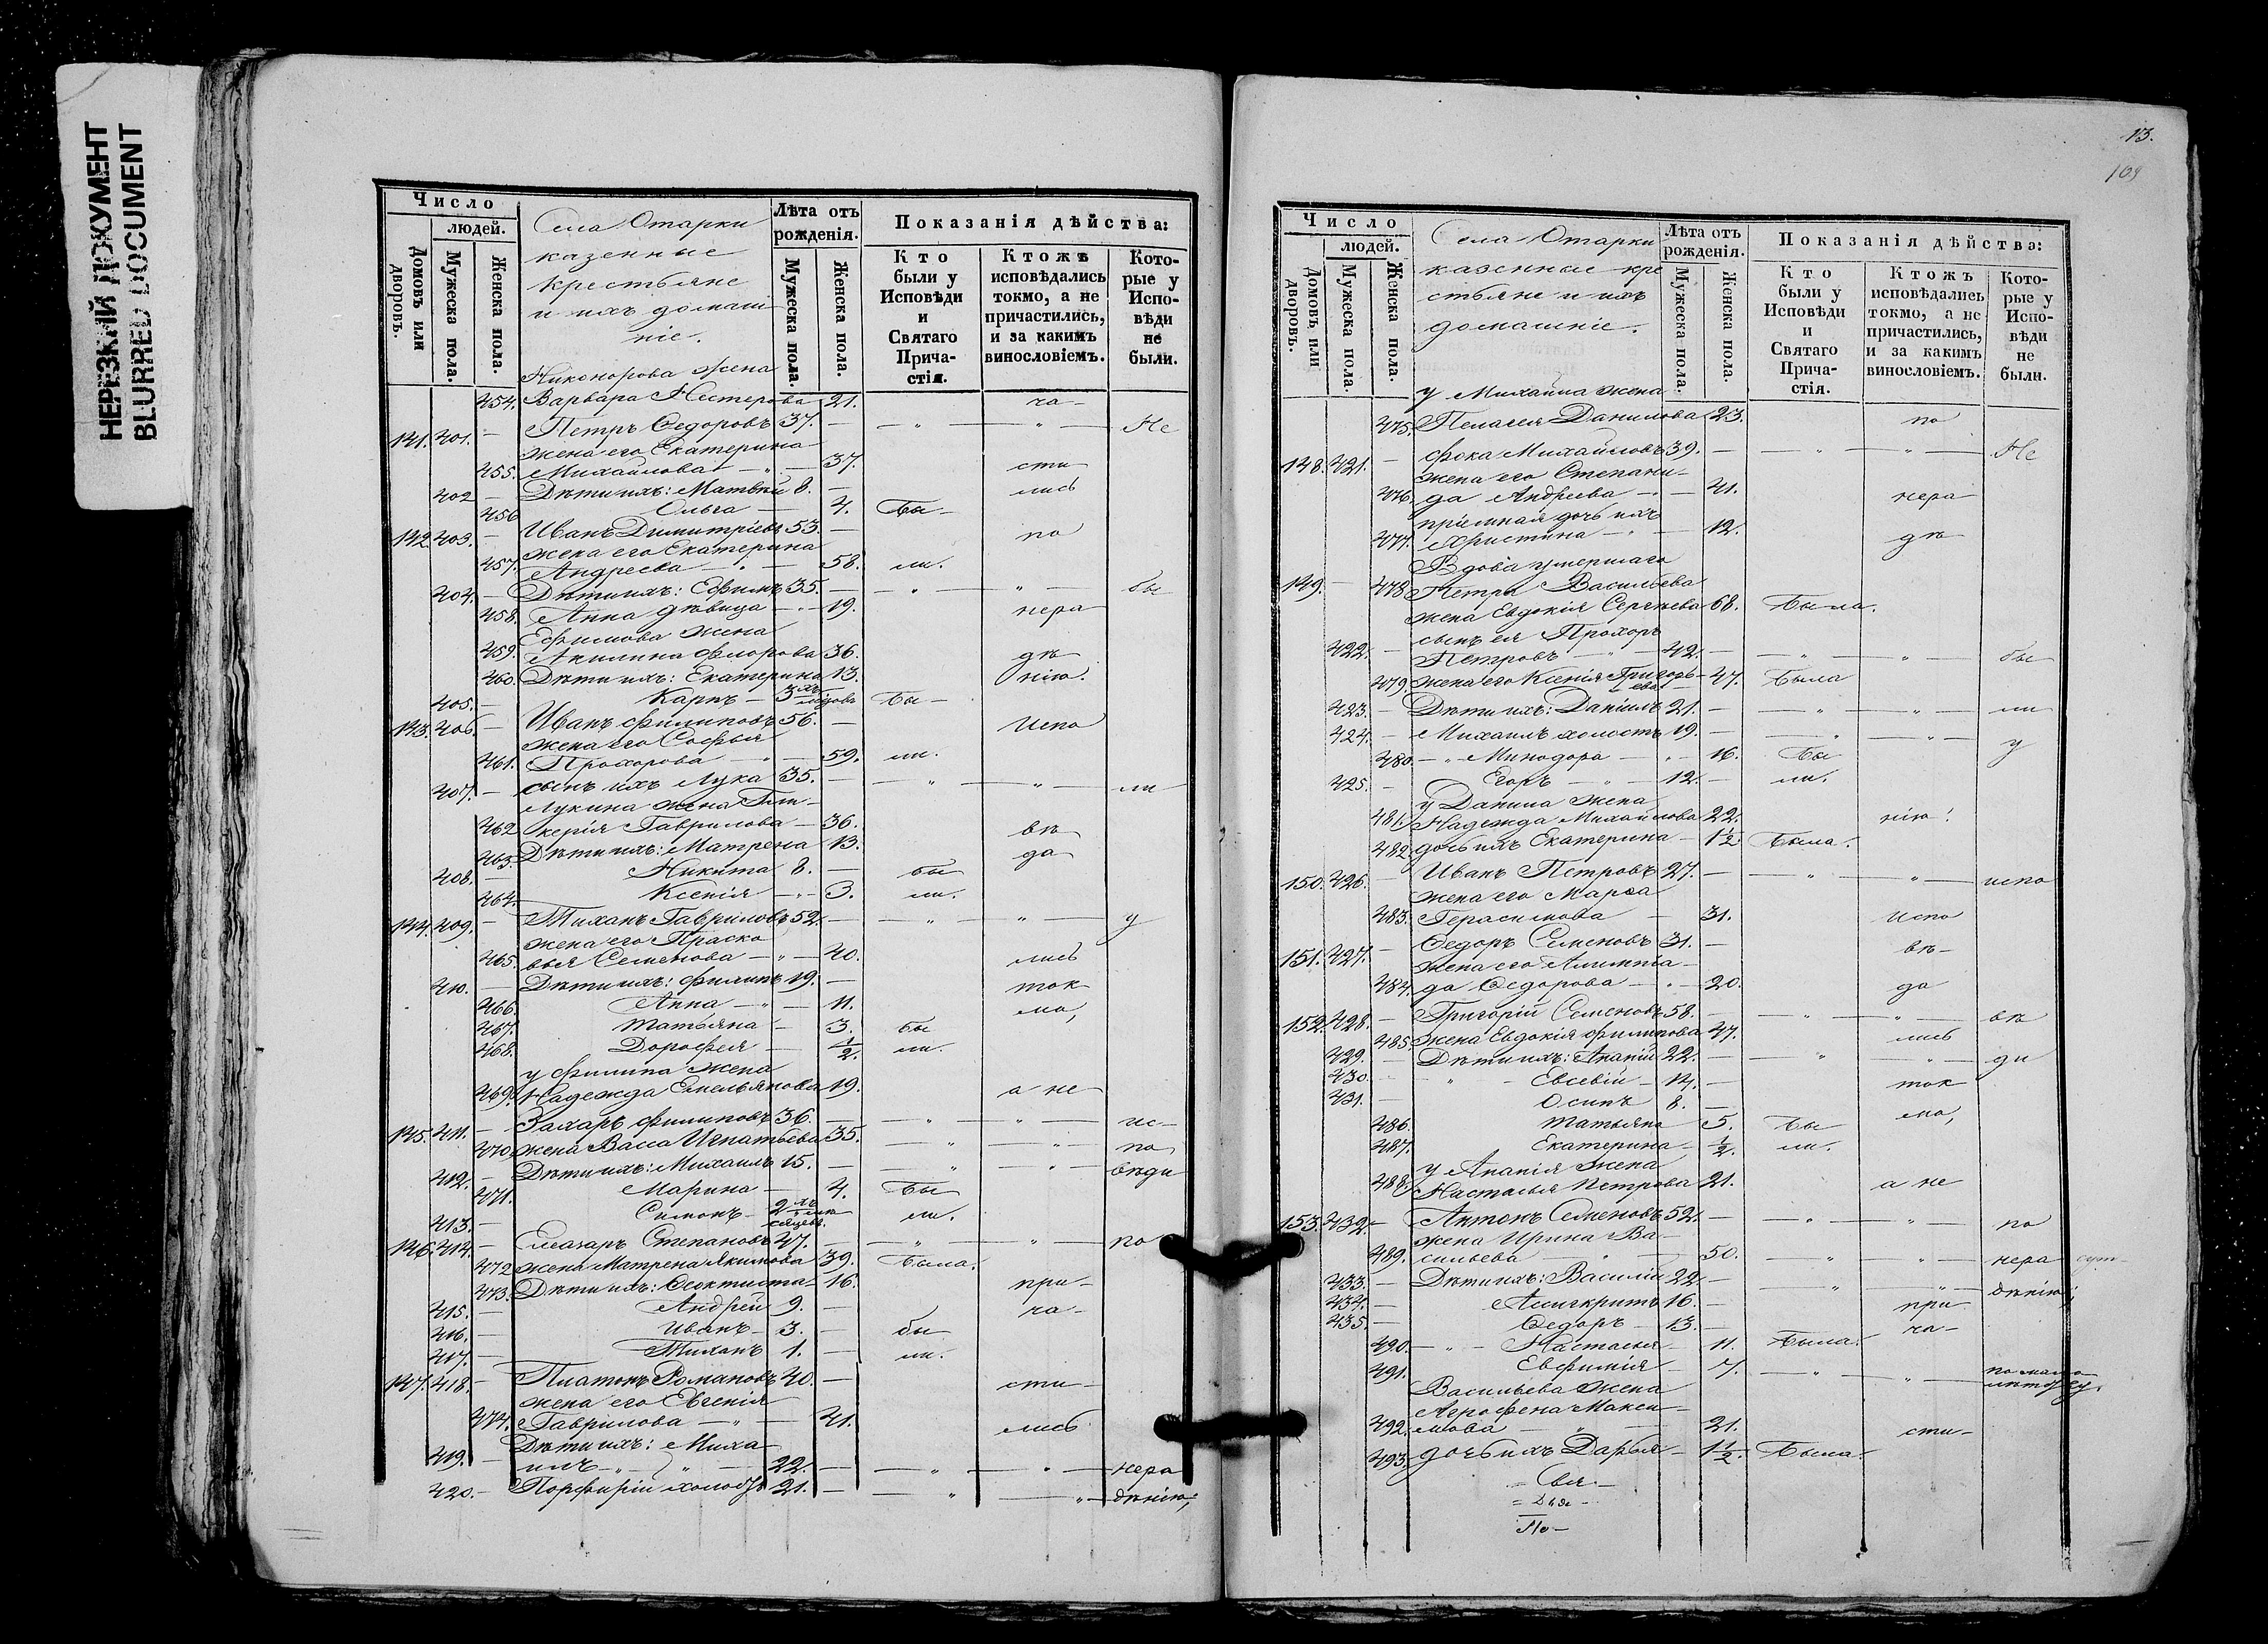 НЕРЕЗКИЙ ДОКУМЕНТ
BLURRED DOCUMENT
Число
людей.
Домовъ или дворовъ.
Мужеска пола.
Женска пола.
Села Отарки
казенные
крестьяне
и ихъ домаш
ніе.
Лѣта отъ рожденія.
Мужеска пола.
Женска пола.
Показанія дѣйства:
Кто были у Исповѣди и Святаго Прича-стія.
Ктожъ исповѣдались токмо, а не причастились, и за какимъ винословіемъ.
Кото-рые у Испо-вѣди не были.
Никонорова жена
454. Варвара Нестерова 21. ча-
141. 401. - Петръ Ѳедоровъ 37. - - " - " - Не
жена его Екатерина
455. Михайлова - " - 37. сти
402 - Дѣти ихъ: Матвѣй 8. - лись
456 Ольга - 4. Бы-
142. 403. - Иванъ Димитріевъ 53. - по
жена его Екатерина
457. Андреева - " - 58. ли.
404. - Дѣти ихъ: Ефимъ 35. - - " - " - бы
458. Анна дѣвица - " - 19. нера
Ефимова жена
459. Акилина Флорова 36. дѣ
460. Дѣти ихъ: Екатерина 13. нію.
405. - Карпъ - 3хъ мѣсяцовъ Бы-
143. 406. - Иванъ Филиповъ 56. - Испо
жена его Софья
461. Прохорова - " - 59. ли.
407. - сынъ ихъ Лука 35. - - " - " - ли
Лукина жена Гли-
462 керія Гаврилова - 36. вѣ
463. Дѣти ихъ: Матрена 13. да
408. - Никита 8. - бы
464. Ксенія - " - 3. ли.
144. 409. - Тихонъ Гавриловъ 52. - - " - " - у
жена его Праско
465. вья Семенова - " - 40. лись
410. - Дѣти ихъ: Филипъ 19. - ток
466. Анна - " - 11. мо,
467. Татьяна - 3. бы
468. Дорофея - 1/2. ли.
у Филипа жена
469. Надежда Емельянова 19. а не
145. 411. - Захаръ Филиповъ 36. - - " - " - ис-
470. жена Васса Игнатьева 35. - " - " - по
412. - Дѣти ихъ: Михаилъ 15. - - " - " - вѣди
471. Марина - 4. Бы
413. - Симонъ - 2хъ мѣсяцевъ ли.
146. 414. - Елеазаръ Степановъ 47. - - " - " - по
472 жена Матрена Якимова 39. Была.
473. Дѣти ихъ: Ѳеоктиста 16. при-
415. - Андрей 9. - ча-
416. - Иванъ - 3. - бы
417. - Тихонъ 1. - ли.
147. 418. - Платонъ Романовъ 40. - сти-
жена его Евгенія
474. Гаврилова - " - 41. лись
Дѣти ихъ: Миха
419. - илъ - " - " - 22. - - " - " - нера
420. - Порфирій холостъ 21. - - " - " - дѣнію;
13.
109
Число
людей.
Домовъ или дворовъ.
Мужеска пола.
Женска пола.
Села Отарки
казенные кре
стьяне и ихъ
домашніе.
Лѣта отъ рожденія.
Мужеска пола.
Женска пола.
Показанія дѣйства:
Кто были у Исповѣди и Святаго Прича-стія.
Ктожъ исповѣдались токмо, а не причастились, и за какимъ винословіемъ.
Кото-рые у Испо-вѣди не были.
у Михаила жена
475. Пелагея Данилова 23. по
148. 421. - Фока Михайловъ 39. - - " - " - Не
жена его Степани-
476. да Андреева - " - 41. нера
пріемная дочь ихъ
477. Христина - " - 12. дѣ
Вдова умершаго
149. - 478 Петра Васильева
жена Евдокія Сергѣева 68. Была.
сынъ ея Прохоръ
422. - Петровъ - " - 42. - - " - " - бы
479. жена его Ксенія Григорь-
ева 47. Была
423. - Дѣти ихъ: Даніилъ 21. - - " - " - ли
424. - Михаилъ холостъ 19. - - " - " - у
480. - " - Минодора - " - 16. Бы
425. - Егоръ - " - 12. - ли.
у Данила жена
481. Надежда Михайлова 22. нію!
482. дочь ихъ Екатерина - 1 1/2 Была.
150. 426. - Иванъ Петровъ 27. - - " - " - испо
жена его Марѳа
483. Герасимова - 31. Испо
151. 427. - Ѳедоръ Семеновъ 31. - вѣ-
жена его Алимпіа-
484. да Ѳедорова - " - 20. да
152. 428. - Григорій Семеновъ 58. - - " - " - вѣ
485. жена Евдокія Филипова 47. лись
429. - Дѣти ихъ: Ананій 22. - - " - " - ди
430. - " - Евсевій - 14. - ток
431. - Осипъ 8. - мо,
486. Татьяна 5. Бы
487. Екатерина - 1/2. ли.
у Ананія жена
488. Настасья Петрова 21. а не
153. 432. - Антонъ Семеновъ 52. - - " - " - по
жена Ирина Ва-
489. сильева " 50. - " - " - нера
433. - Дѣти ихъ: Василій 22. - - " - " - дѣнію;
434. - Асигкритъ 16. - при
435. - Ѳедоръ - 13. - ча-
490. - " - Настасья - 11. Была.
491. Евфимія - 7. - " - " - по мало
лѣтству.
Васильева жена
Агрофена Макси-
492. мова - " - 21. сти-
493. дочь ихъ Дарья - 1 1/2. Была.